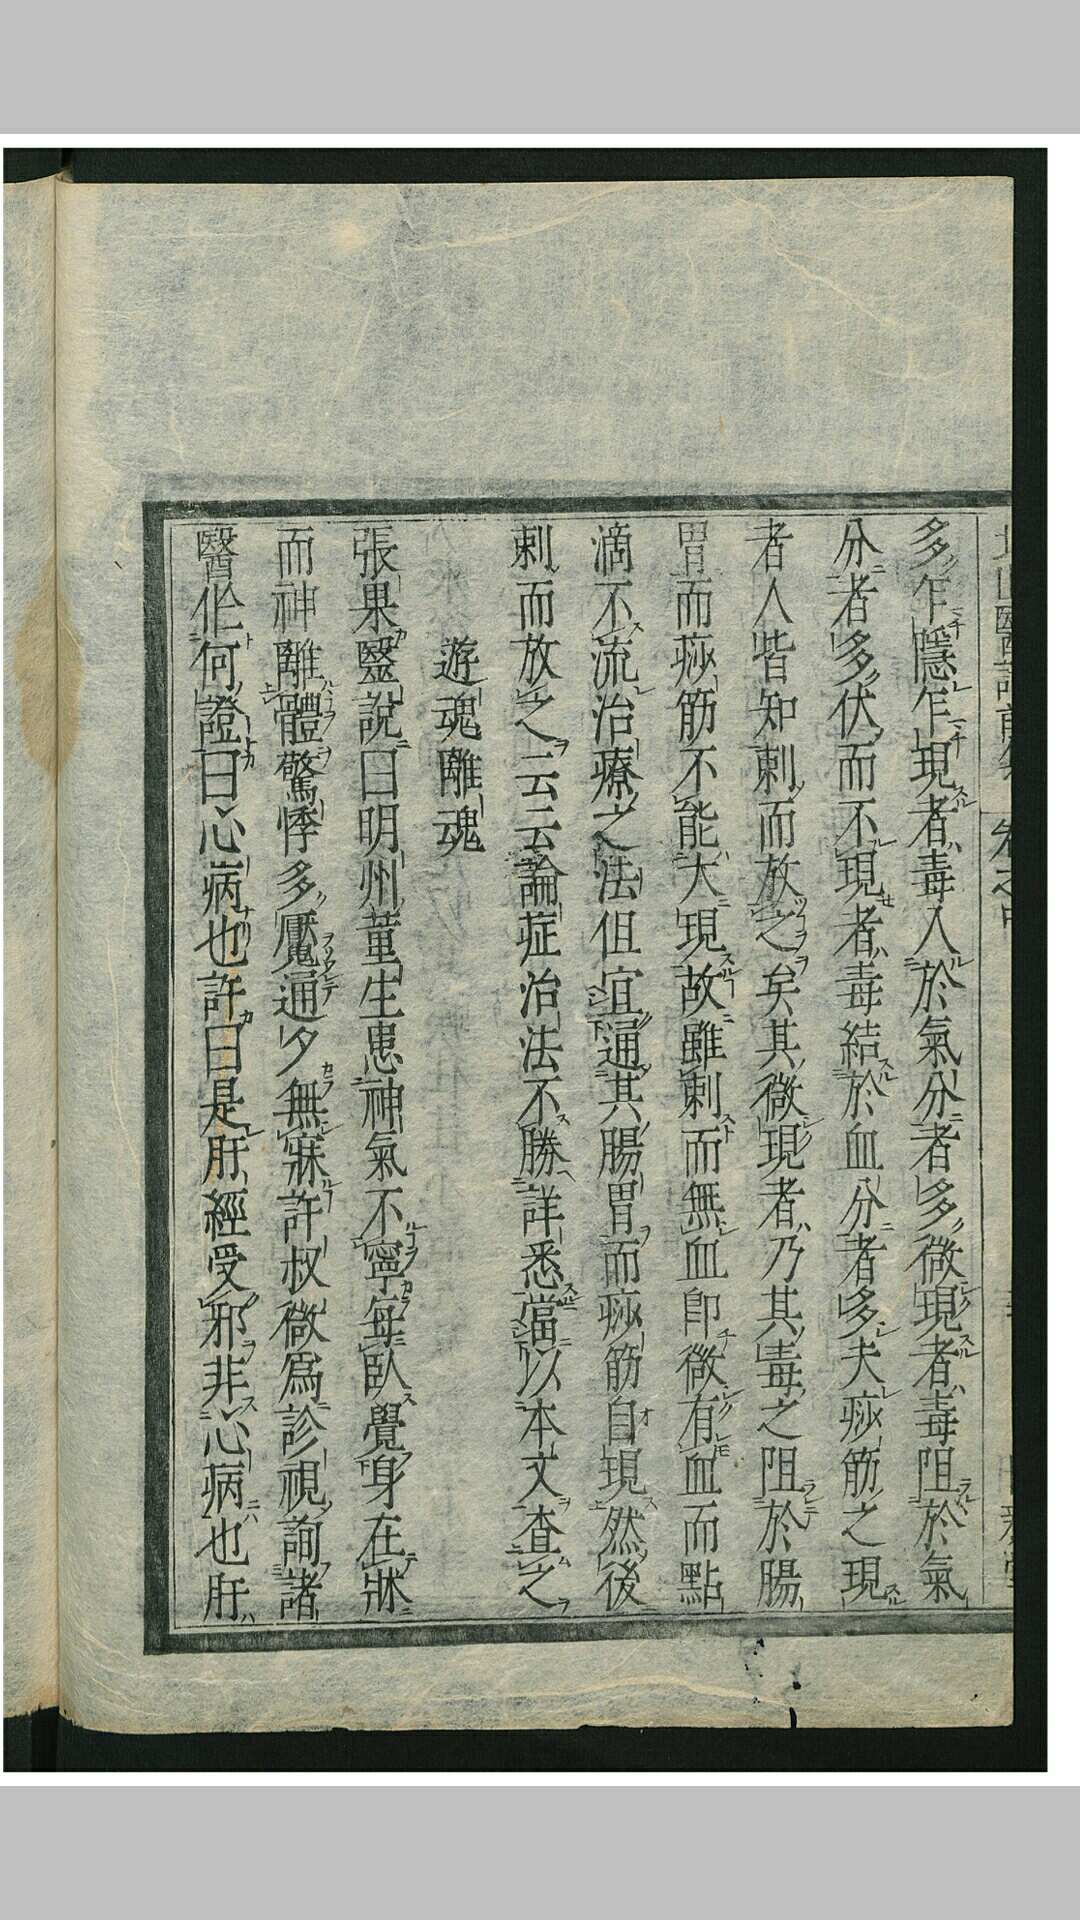 多乍隱乍現者毒入於氣分者多微現者毒阻於氣
分者多伏而不現者毒結於血分者多夫痧筋之現
者人皆知刺而放之矣其微現者乃其毒之阻於腸
胃而痧筋不能大現故雖刺而無血即微有血而點
滴不流治療之法但宜通其腸胃而痧筋自現然後
刺而放之云云論症治法不勝詳悉當以本文查之
遊魂離魂
張果醫說曰明州董生患神氣不寧每臥覺身在牀
而神離體驚悸多魘通夕無寐許叔微爲診視詢諸
醫作何證曰心病也許曰是肝經受邪非心病也肝